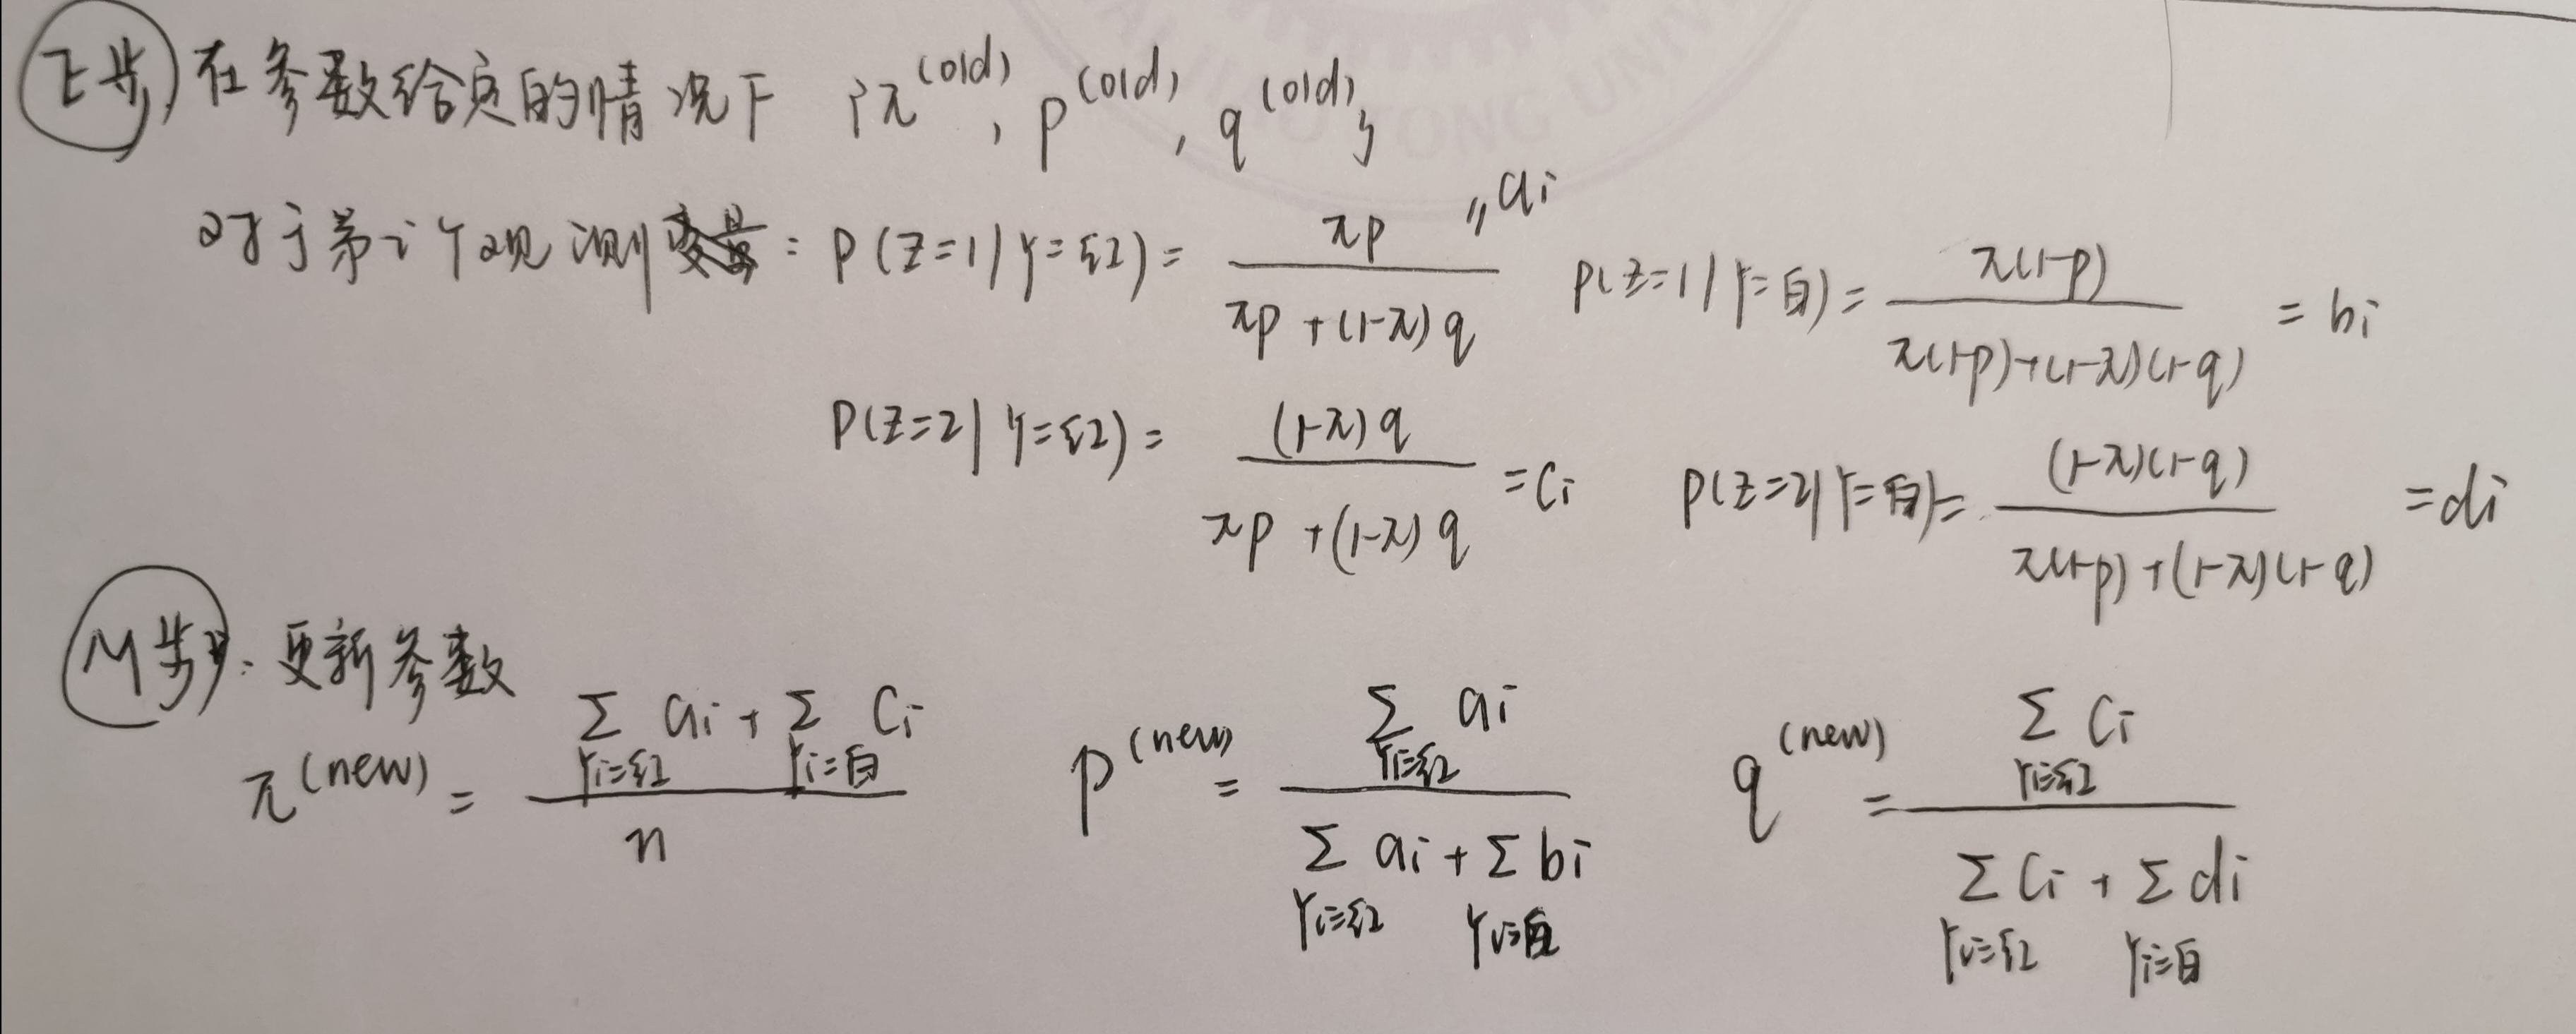 E步, 在参数给定的情况下 {π^(old), p^(old), q^(old)}
对于第i个观测变量: P(Z=1|Y=红) = πp / (πp + (1-π)q) = ai P(Z=1|Y=白) = π(1-p) / (π(1-p)+(1-π)(1-q)) = bi
P(Z=2|Y=红) = (1-π)q / (πp + (1-π)q) = ci P(Z=2|Y=白) = (1-π)(1-q) / (π(1-p)+(1-π)(1-q)) = di
M步: 更新参数
π^(new) = (Σ_{Yi=红} ai + Σ_{Yi=白} ci) / n p^(new) = Σ_{Yi=红} ai / (Σ_{Yi=红} ai + Σ_{Yi=白} bi) q^(new) = Σ_{Yi=红} ci / (Σ_{Yi=红} ci + Σ_{Yi=白} di)